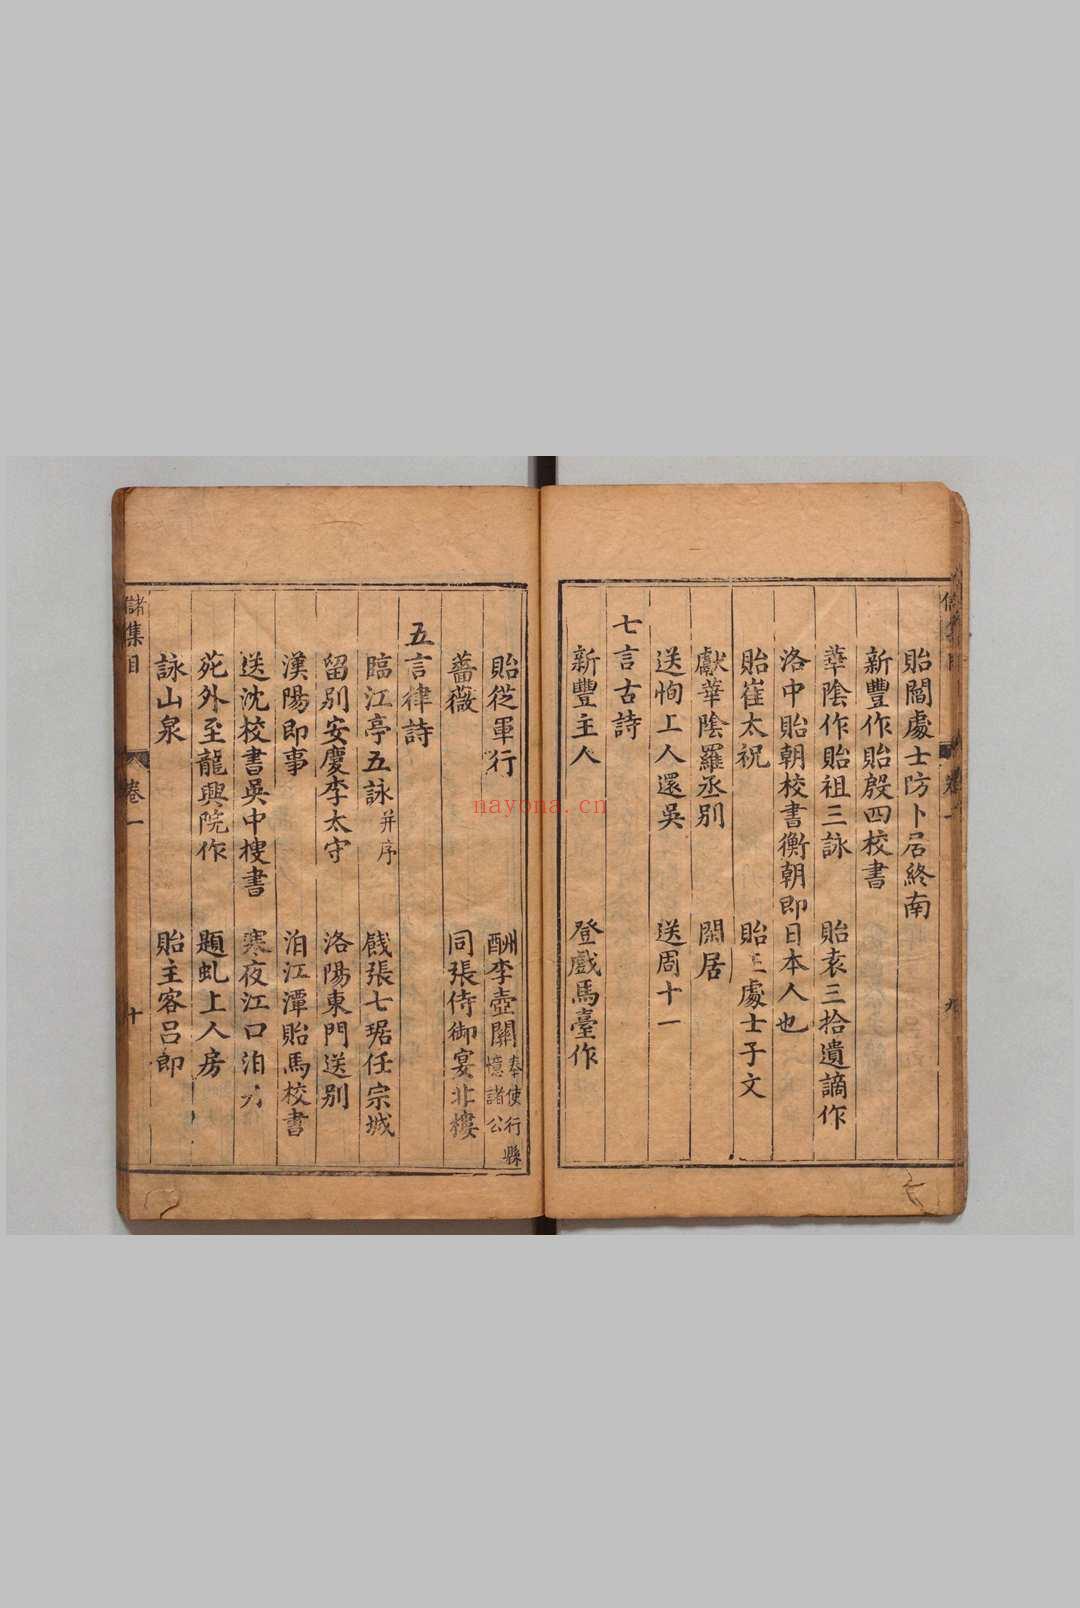 貽閻處士防卜居終南
新豐作貽殷四校書
華陰作貽祖三詠 貽袁三拾遺謫作
洛中貽朝校書衡朝即日本人也
貽崔太祝 貽王處士子文
獻華陰羅丞別 閑居
送恂上人還吳 送周十一
七言古詩
新豐主人 登戲馬臺作
貽從軍行 酬李壺關奉使行縣憶諸公
薔薇 同張侍御宴北樓
五言律詩
臨江亭五詠并序 餞張七琚任宗城
留別安慶李太守 洛陽東門送別
漢陽即事 泊江潭貽馬校書
送沈校書吳中搜書 寒夜江口泊舟
苑外至龍興院作 題虬上人房
詠山泉 貽主客呂郎
儲集目 卷一 十
nayona.cn